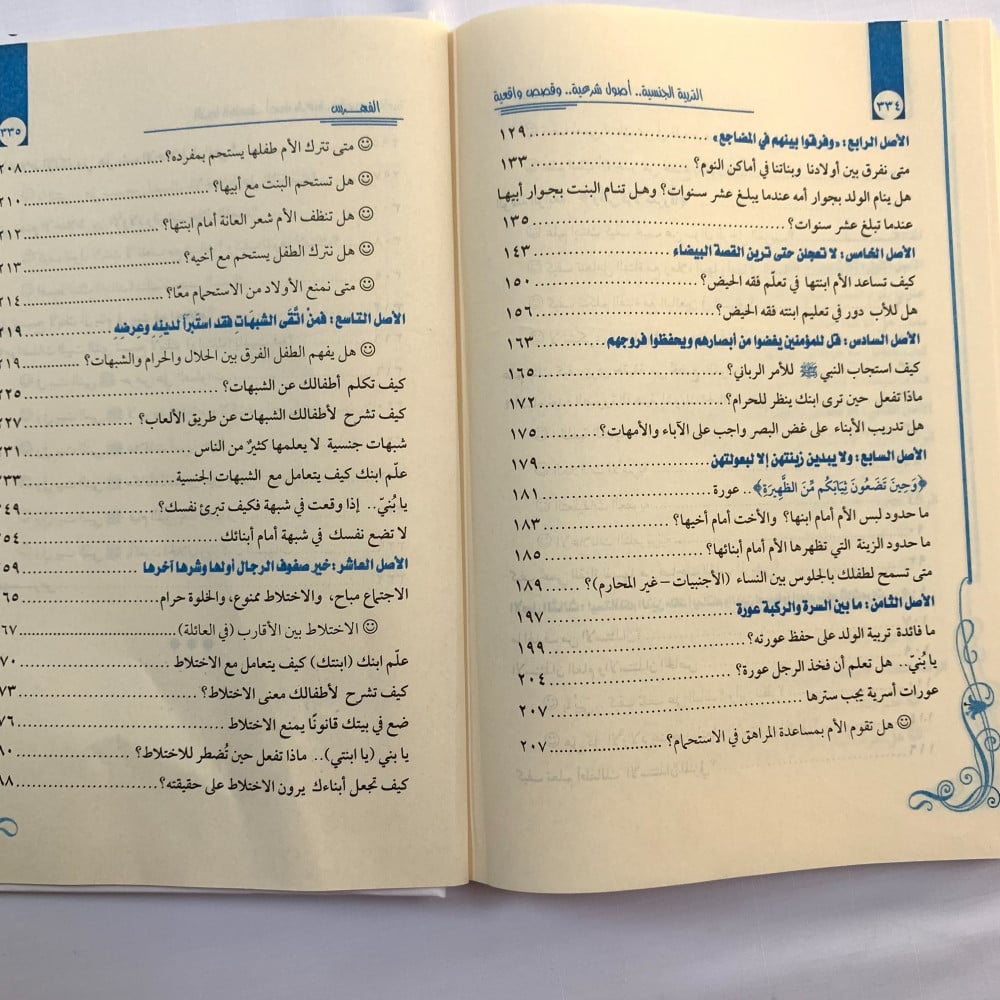 ٣٣٤
التربية الجنسية.. أصول شرعية.. وقصص واقعية
الأصل الرابع: «وفرقوا بينهم في المضاجع» ١٢٩
متى نفرق بين أولادنا وبناتنا في أماكن النوم؟ ١٣٣
هل ينام الولد بجوار أمه عندما يبلغ عشر سنوات؟ وهل تنام البنت بجوار أبيها
عندما تبلغ عشر سنوات؟ ١٣٥
الأصل الخامس: لا تعجلن حتى ترين القصة البيضاء ١٤٣
كيف تساعد الأم ابنتها في تعلّم فقه الحيض؟ ١٥٠
هل للأب دور في تعليم ابنته فقه الحيض؟ ١٥٦
الأصل السادس: قل للمؤمنين يغضوا من أبصارهم ويحفظوا فروجهم ١٦٣
كيف استجاب النبي ﷺ للأمر الرباني؟ ١٦٥
ماذا تفعل حين ترى ابنك ينظر للحرام؟ ١٧٢
هل تدريب الأبناء على غض البصر واجب على الآباء والأمهات؟ ١٧٥
الأصل السابع: ولا يبدين زينتهن إلا لبعولتهن ١٧٩
﴿وَحِينَ تَضَعُونَ ثِيَابَكُم مِّنَ الظَّهِيرَةِ﴾.. عورة ١٨١
ما حدود لبس الأم أمام ابنها؟ والأخت أمام أخيها؟ ١٨٣
ما حدود الزينة التي تظهرها الأم أمام أبنائها؟ ١٨٥
متى تسمح لطفلك بالجلوس بين النساء (الأجنبيات – غير المحارم)؟ ١٨٩
الأصل الثامن: ما بين السرة والركبة عورة ١٩٧
ما فائدة تربية الولد على حفظ عورته؟ ١٩٩
يا بُنيّ.. هل تعلم أن فخذ الرجل عورة؟ ٢٠٤
عورات أسرية يجب سترها ٢٠٧
☺ هل تقوم الأم بمساعدة المراهق في الاستحمام؟ ٢٠٧
الفهرس
٣٣٥
☺ متى تترك الأم طفلها يستحم بمفرده؟ ٢٠٨
☺ هل تستحم البنت مع أبيها؟ ٢١٠
☺ هل تنظف الأم شعر العانة أمام ابنتها؟ ٢١٢
☺ هل نترك الطفل يستحم مع أخيه؟ ٢١٣
☺ متى نمنع الأولاد من الاستحمام معًا؟ ٢١٤
الأصل التاسع: فمن اتَّقَى الشبهات فقد استَبرَأ لدينِهِ وعِرضِهِ ٢١٩
☺ هل يفهم الطفل الفرق بين الحلال والحرام والشبهات؟ ٢١٩
كيف تكلم أطفالك عن الشبهات؟ ٢٢٥
كيف تشرح لأطفالك الشبهات عن طريق الألعاب؟ ٢٢٧
شبهات جنسية لا يعلمها كثيرٌ من الناس ٢٣١
علّم ابنك كيف يتعامل مع الشبهات الجنسية ٢٣٣
يا بُنيّ.. إذا وقعت في شبهة فكيف تبرئ نفسك؟ ٤٩
لا تضع نفسك في شبهة أمام أبنائك ٥٤
الأصل العاشر: خير صفوف الرجال أولها وشرها آخرها ٥٩
الاجتماع مباح، والاختلاط ممنوع، والخلوة حرام ٦٥
☺ الاختلاط بين الأقارب (في العائلة) ٦٧
علّم ابنك (ابنتك) كيف يتعامل مع الاختلاط ٧٠
كيف تشرح لأطفالك معنى الاختلاط؟ ٧٣
ضع في بيتك قانونًا يمنع الاختلاط ٧٦
يا بني (يا ابنتي).. ماذا تفعل حين تُضطر للاختلاط؟ ٨٠
كيف تجعل أبناءك يرون الاختلاط على حقيقته؟ ٨٨